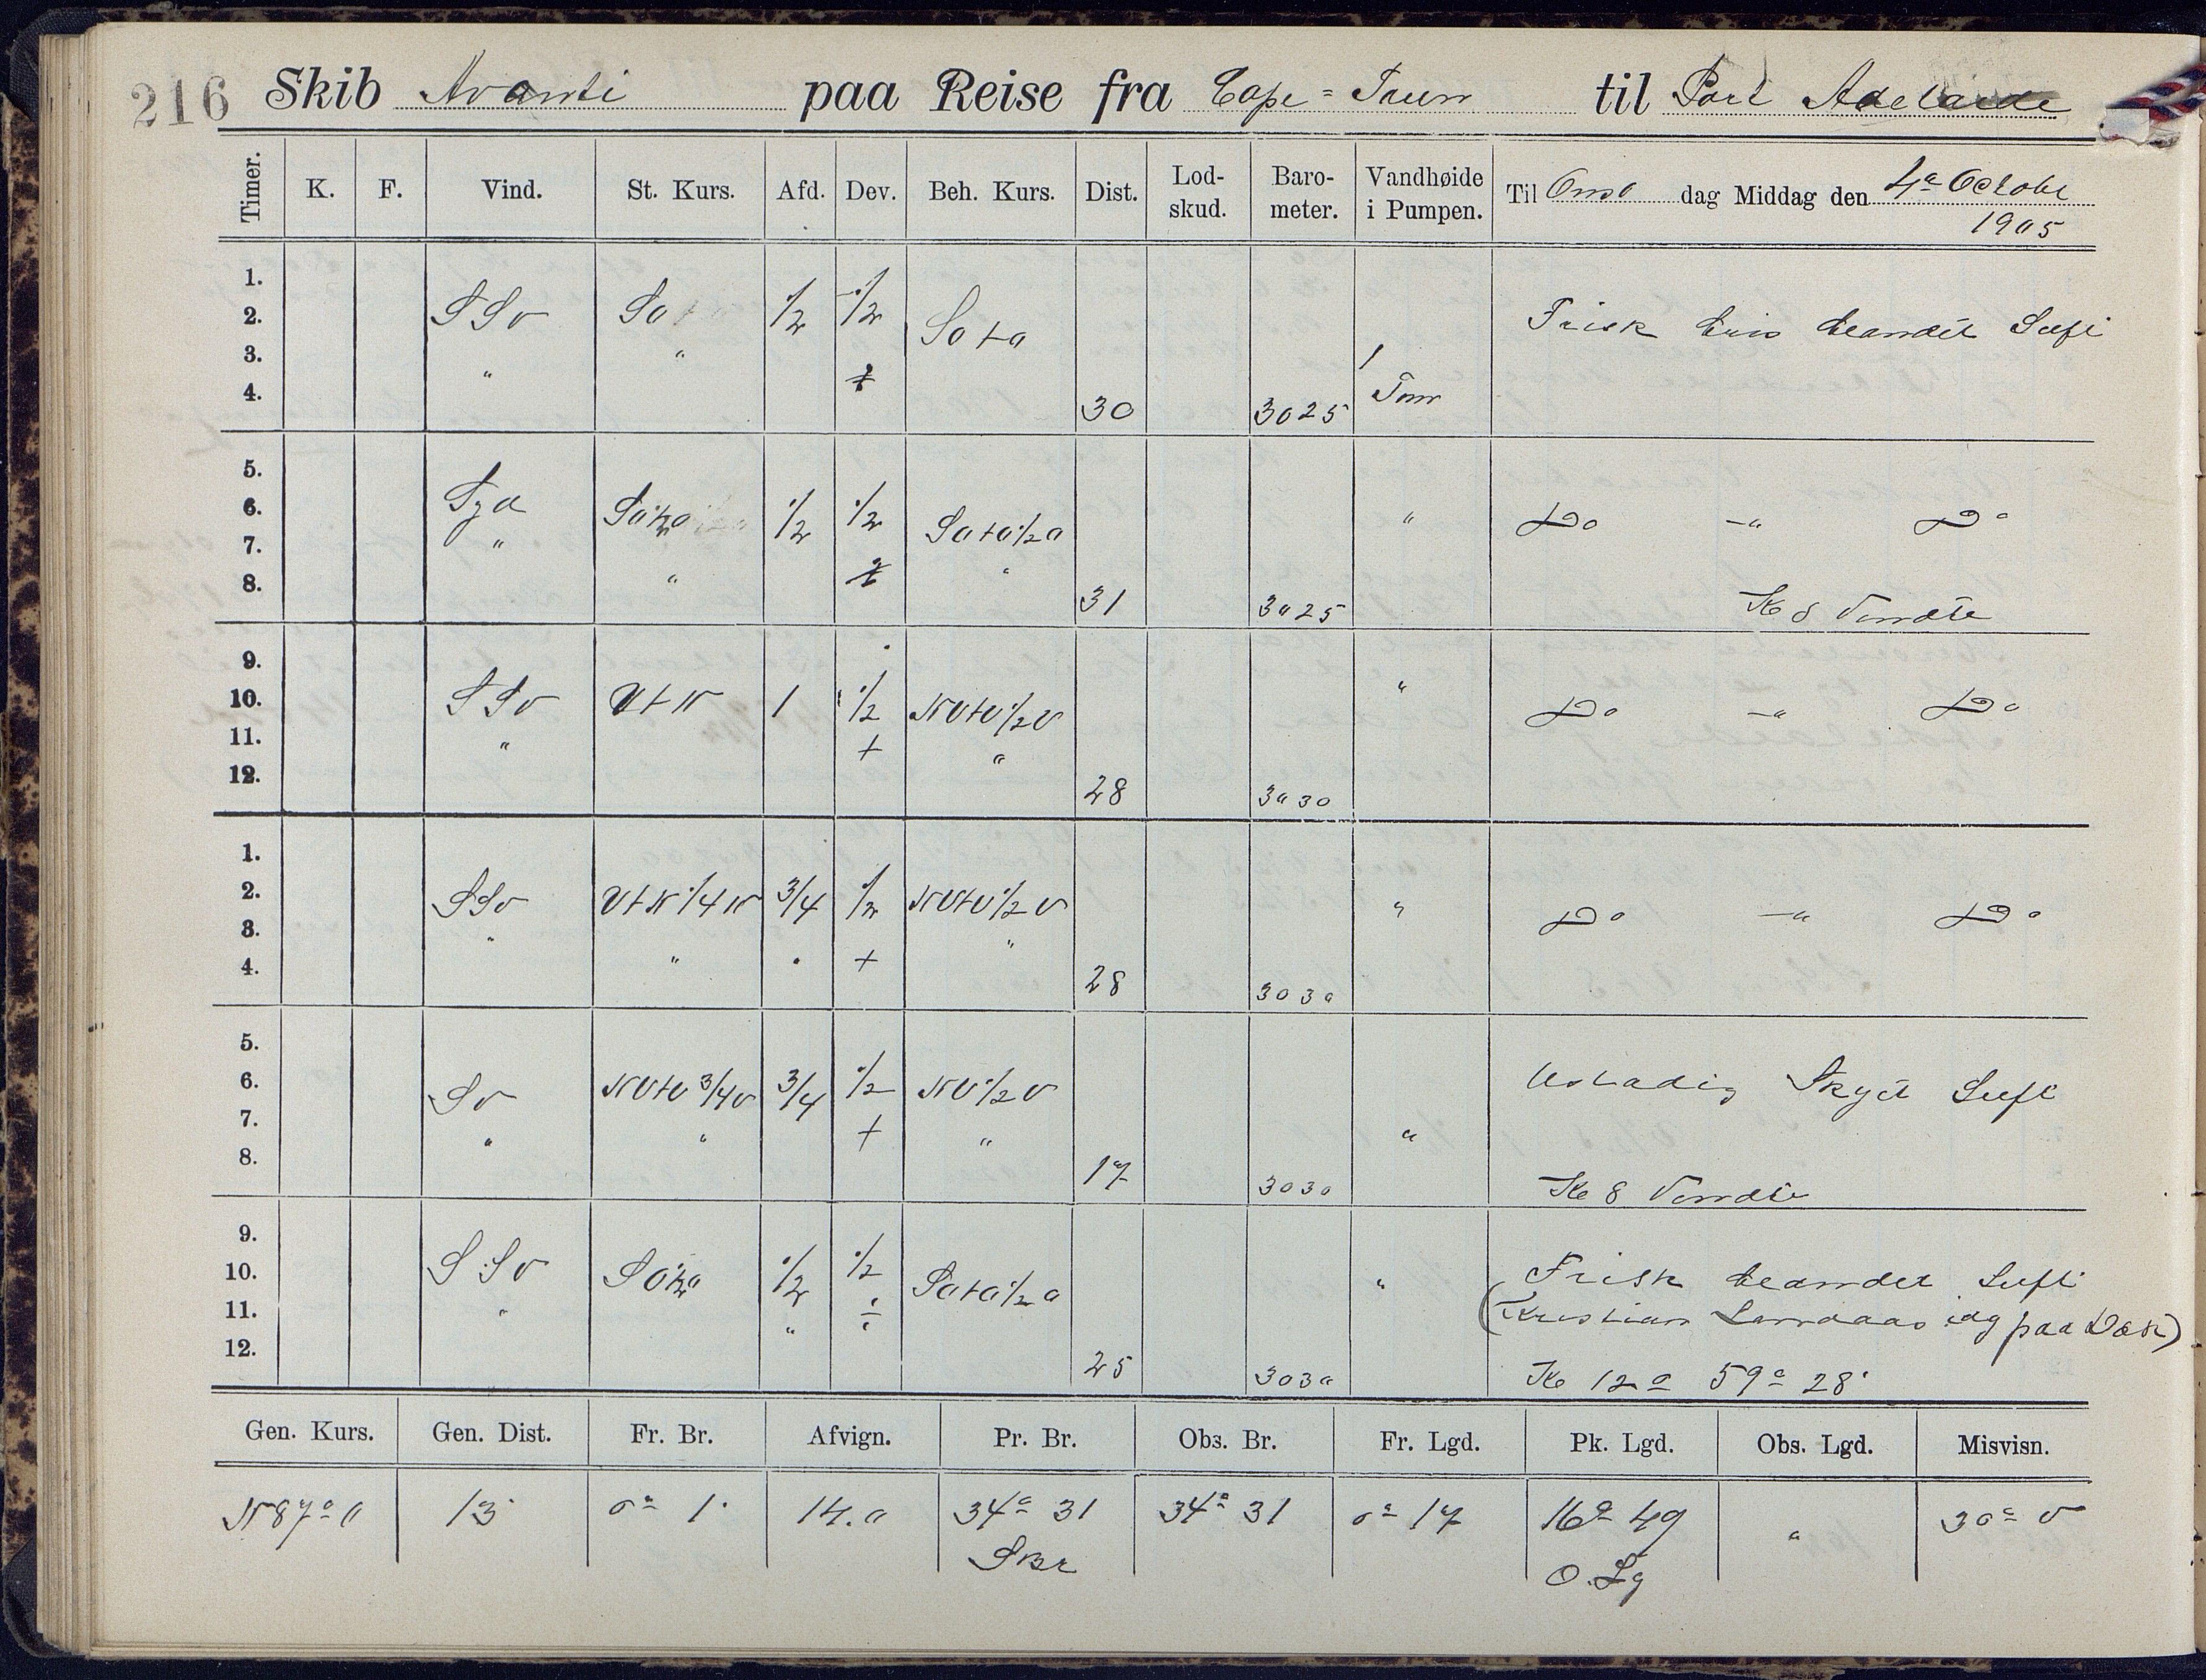 216 Skib Avanti paa Reise fra Cape = Toun til Port Adelaide
Timer. K. F. Vind. St. Kurs. Afd. Dev. Beh. Kurs. Dist. Lod-skud. Baro-meter. Vandhøide i Pumpen. Til Onsd dag Middag den 4de Octobr
1905
1.
2. SSv So 1/2 1/2 Frisk bris blandet Luft
3. " " So t o 1
4. 30 3025 Tom
5.
6. 1/2 1/2 " Do -"- Do
7. "
8. " " 31 3025 Kl 8 Vendte
9.
10. SSv V t N 1 1/2 NV t V 1/2 V " Do -"- Do
11. " + "
12. 28 3030
1.
2. SSv V t N 1/4 N 3/4 1/2 NV t V 1/2 V " Do -"- Do
3. " "
4. " " + 28 3030
5.
6. Sv NV t V 3/4 V 3/4 1/2 NV 1/2 V Ustadig Skyet Luft
7. " " + " "
8. 17 3030 Kl 8 Vendte
9.
10. SSv 1/2 1/2 So t o 1/2 o " Frisk blandet Luft
11. " " ÷ (Kristian idag paa Dæk)
12. 25 3030 Kl 12 59° 28'
Gen. Kurs. Gen. Dist. Fr. Br. Afvign. Pr. Br. Obs. Br. Fr. Lgd. Pk. Lgd. Obs. Lgd. Misvisn.
N 87° O 13' 0° 1' 14. O 34° 31 34° 31 0° 17 16° 49 " 30° V
S Br O. Lg